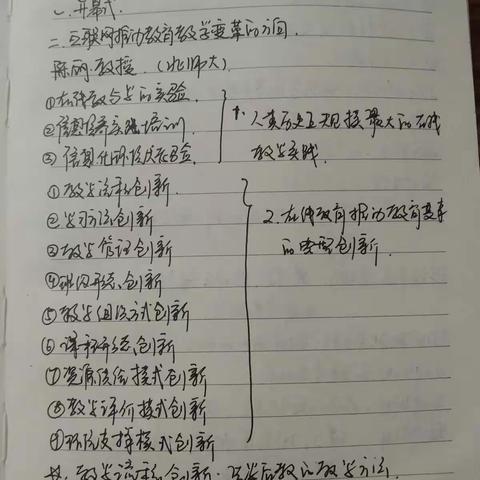 一.开幕式.
二.互联网推动教育教学变革的方向.
陈丽教授.(北师大)
①在线教与学的实验.
②信息素养实践培训.
③信息化环境大检验.
1.人类历史上规模最大的在线
教学实践.
①教学流程创新.
②学习方法创新
③教学管理创新
④班级形态创新
⑤教学组织方式创新
⑥课程形态创新
⑦资源供给模式创新
⑧教学评价模式创新
⑨环境支持模式创新
2.在线教育推动教育变革
的主要创新.
教学流程创新:先学后教的教学方法.